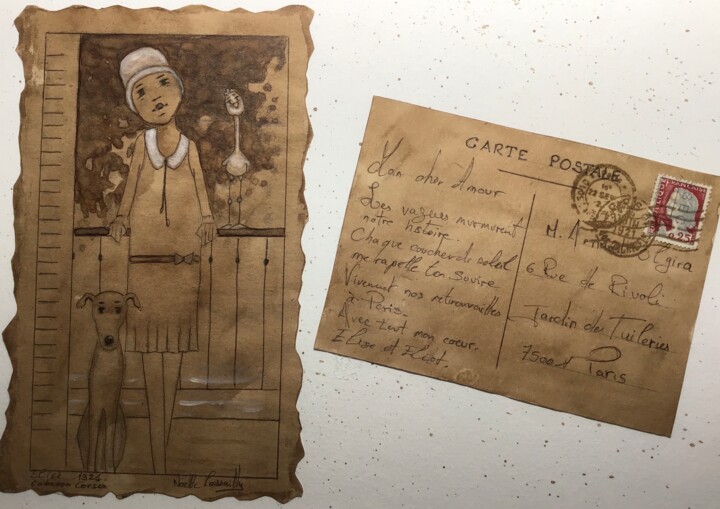 Elise 1926
CARTE POSTALE
Mon cher Amour
Les vagues murmurent
notre histoire.
Chaque coucher de soleil
me rapelle ton sourire
Vivement nos retrouvailles
à Paris.
Avec tout mon coeur.
Elise et Eliot.
M.
6 Rue de Rivoli
Jardin des Tuileries
75001 Paris
0,25